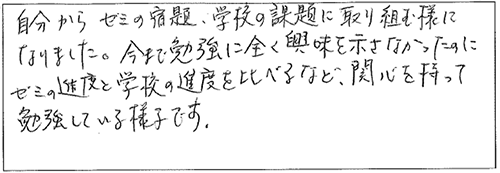 自分からゼミの宿題、学校の課題に取り組む様に
なりました。今まで勉強に全く興味を示さなかったのに
ゼミの進度と学校の進度を比べるなど、関心を持って
勉強している様子です。